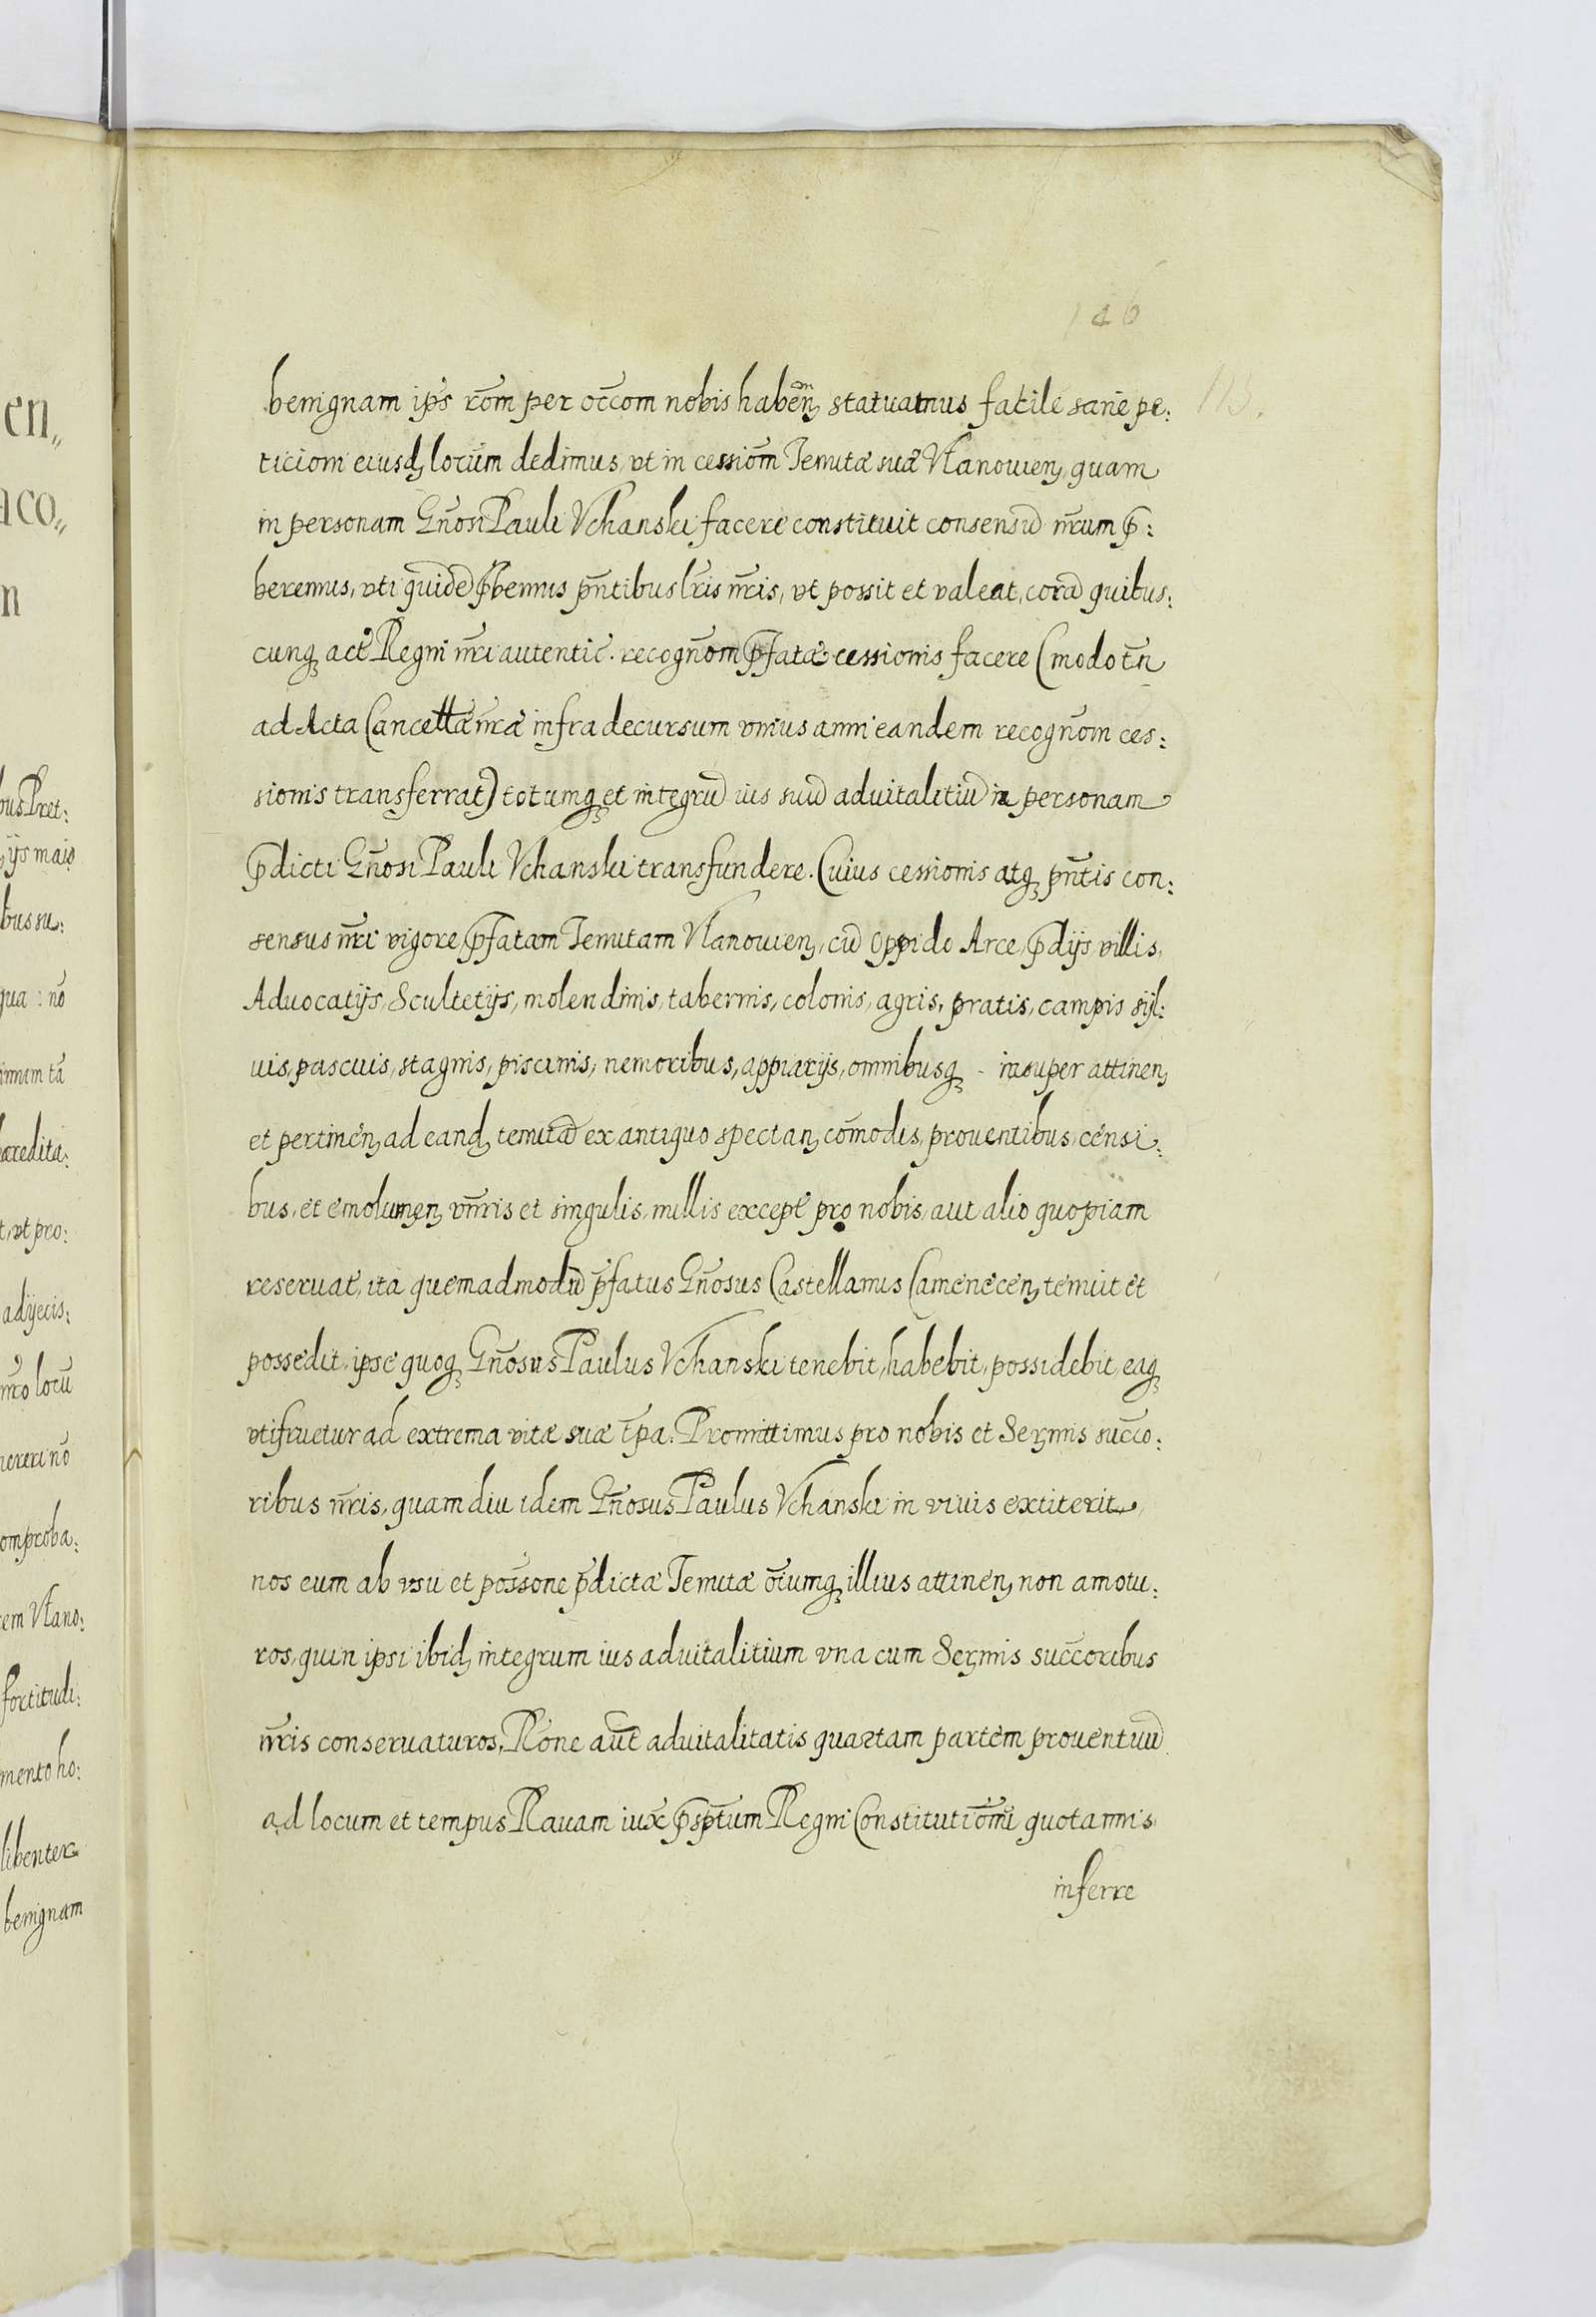 en„
aco„
n
bus Pret:
ijs maio
bus su:
qua : nō
innam tā
hæredita:
t, vt pro:
adijecis:
mr̃o locū
nereri nō
omproba:
em Vłano:
fortitudi:
mento ho:
libenter
benignam
146
113.
benignam ips̃ rõm per occ̃om nobis habeñ, statuamus facile sane pe:
ticiom eiusd, locum dedimus, vt in cessiõm Tenutæ suæ Vłanowien, quam
in personam Gñosi Pauli Vchanski facere constituit consensū nr̃um p̃:
beremus, vti quidē p̃bemus pñtibus lr̃is nr̃is, vt possit et valeat, corā quibus:
cunq, act̃ Regni nr̃i autentic̃. recogñom p̃fatæ cessionis facere (modo tñ
ad Acta Cancellæ nr̃æ infra decursum vnius anni eandem recogñom ces:
sionis transferrat) totumq, et integrū ius suū aduitalitiū in personam
p̃dicti Gñosi Pauli Vchanski transfundere. Cuius cessionis atq, pñtis con:
sensus nr̃i vigore, p̃fatam Tenutam Vłanowien, cū Oppido Arce, p̃dijs villis,
Aduocatijs, Scultetijs, molendinis, tabernis, colonis, agris, pratis, campis syl:
uis, pascuis, stagnis, piscinis, nemoribus, appiarijs, omnibusq - insuper attinen,
et pertinen, ad eand, tenutā ex antiquo spectan, cõmodis, prouentibus, censi:
bus, et emolumen, vñris et singulis, nullis except̃ pro nobis, aut alio quopiam
reseruat̃, ita quemadmodū p̃fatus Gñosus Castellanus Camenecen, tenuit et
possedit, ipse quoq, Gñosus Paulus Vchanski tenebit, habebit, possidebit, eaq,
vtifruetur ad extrema vitæ suæ t̃pa. Promittimus pro nobis et Sermis succo:
ribus nr̃is, quam diu idem Gñosus Paulus Vchanski in viuis extiterit,
nos eum ab vsu et possone p̃dictæ Tenutæ oĩumq, illius attinen, non amotu:
ros, quin ipsi ibid, integrum ius aduitalitium vna cum Sermis succoribus
nr̃is conseruaturos. Rõne aut̃ aduitalitatis quartam partem prouentuū
ad locum et tempus Rauam iux̃ p̃sp̃tum Regni Constitutiom̃ quotannis
inferre